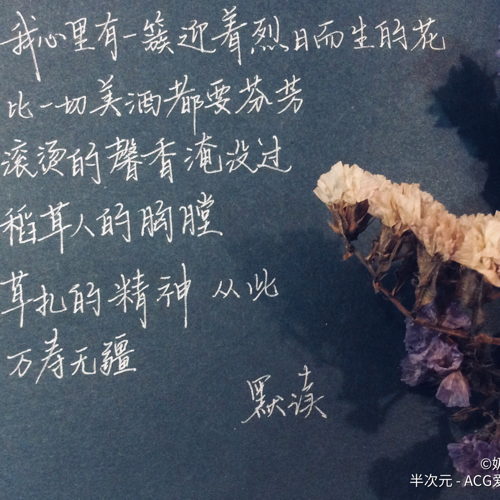 我心里有一簇迎着烈日而生的花
比一切美酒都要芬芳
滚烫的馨香淹没过
稻草人的胸膛
草扎的精神 从此
万寿无疆
默读
半次元 - ACG爱